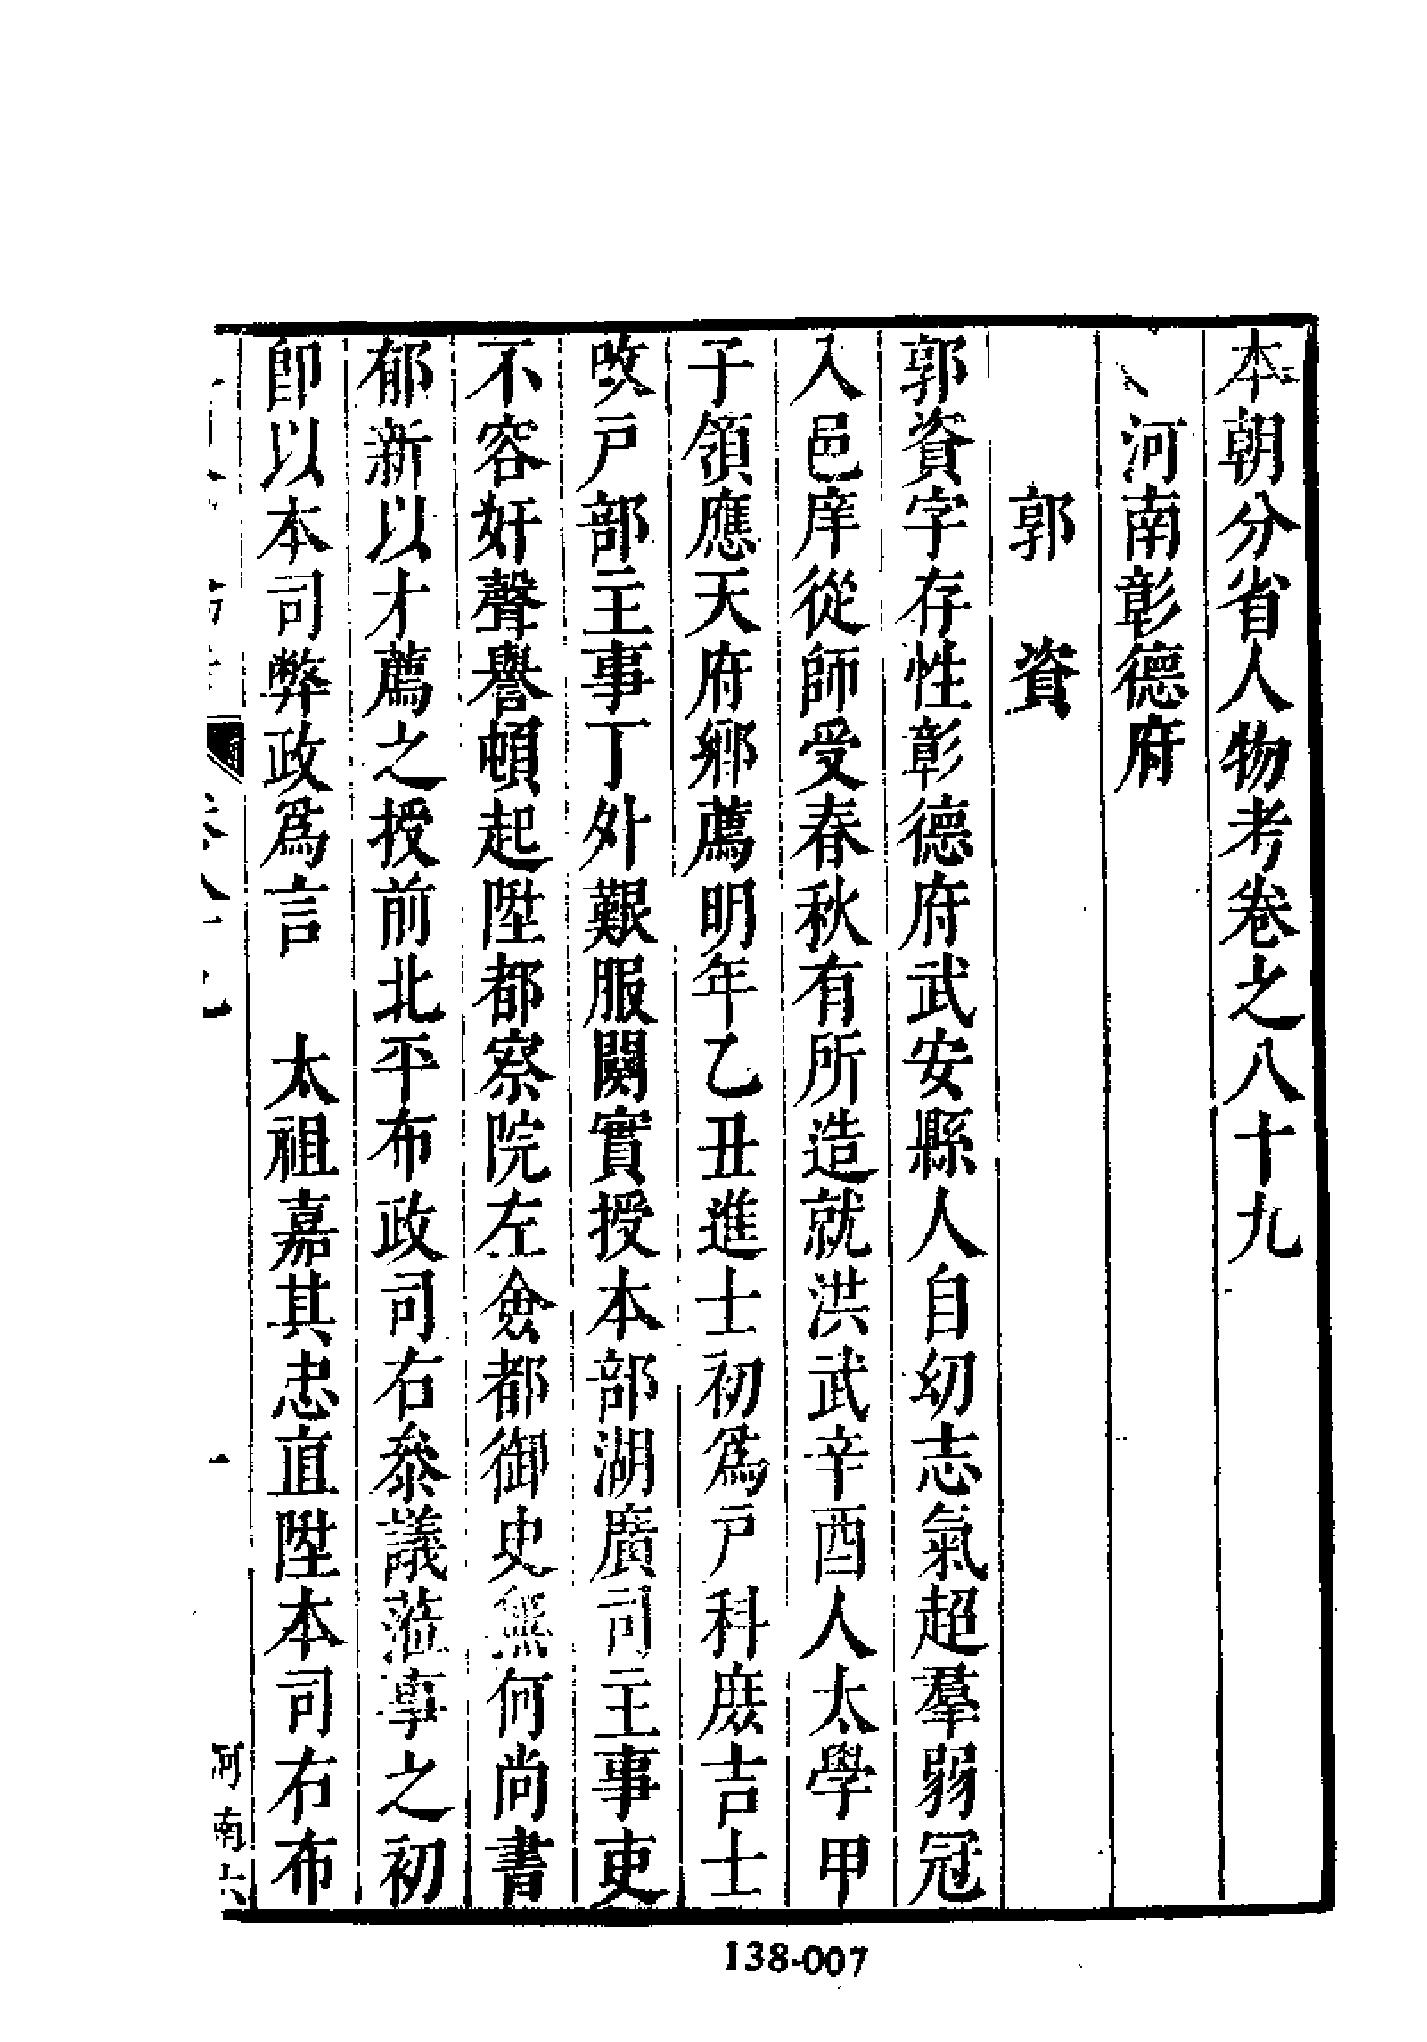 本朝分省人物考卷之八十九
河南彰德府
郭資
郭資字存性彰德府武安縣人自幼志氣超羣弱冠
入邑庠從師受春秋有所造就洪武辛酉入太學甲
子領應天府鄉薦明年乙丑進士初爲戶科庶吉士
改戶部主事丁外艱服闋實授本部湖廣司主事吏
不容奸聲譽頓起陞都察院左僉都御史無何尚書
郁新以才薦之授前北平布政司右叅議蒞事之初
即以本司弊政爲言　太祖嘉其忠直陞本司右布
河南六
138-007